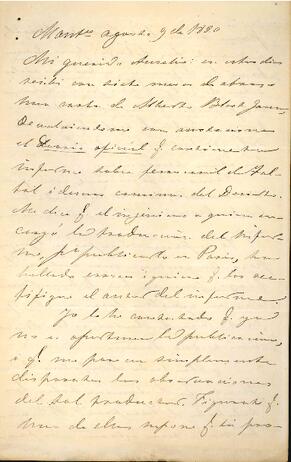 Mont.eo agosto 9 de 1890
Mi querido Aurelio: en estos dias
recibi con siete meses de atraso
una carta de Alberto Block
el Diario oficial q. contiene tu
informe sobre ferrocarril de
i demas caminos del Desierto.
Me dice q. el ingeniero a quien en-
cargó la traducción del infor-
me, pª publicarlo en Paris, ha
hallado errores i quiere q. los rec-
tifique el autor del informe.
Yo le he contestado q. que
no es oportuna la publicacion,
i q. me parecen simplemente
disparates las observaciones
del tal traductor. Figurate q.
una de ellas supone q. tu